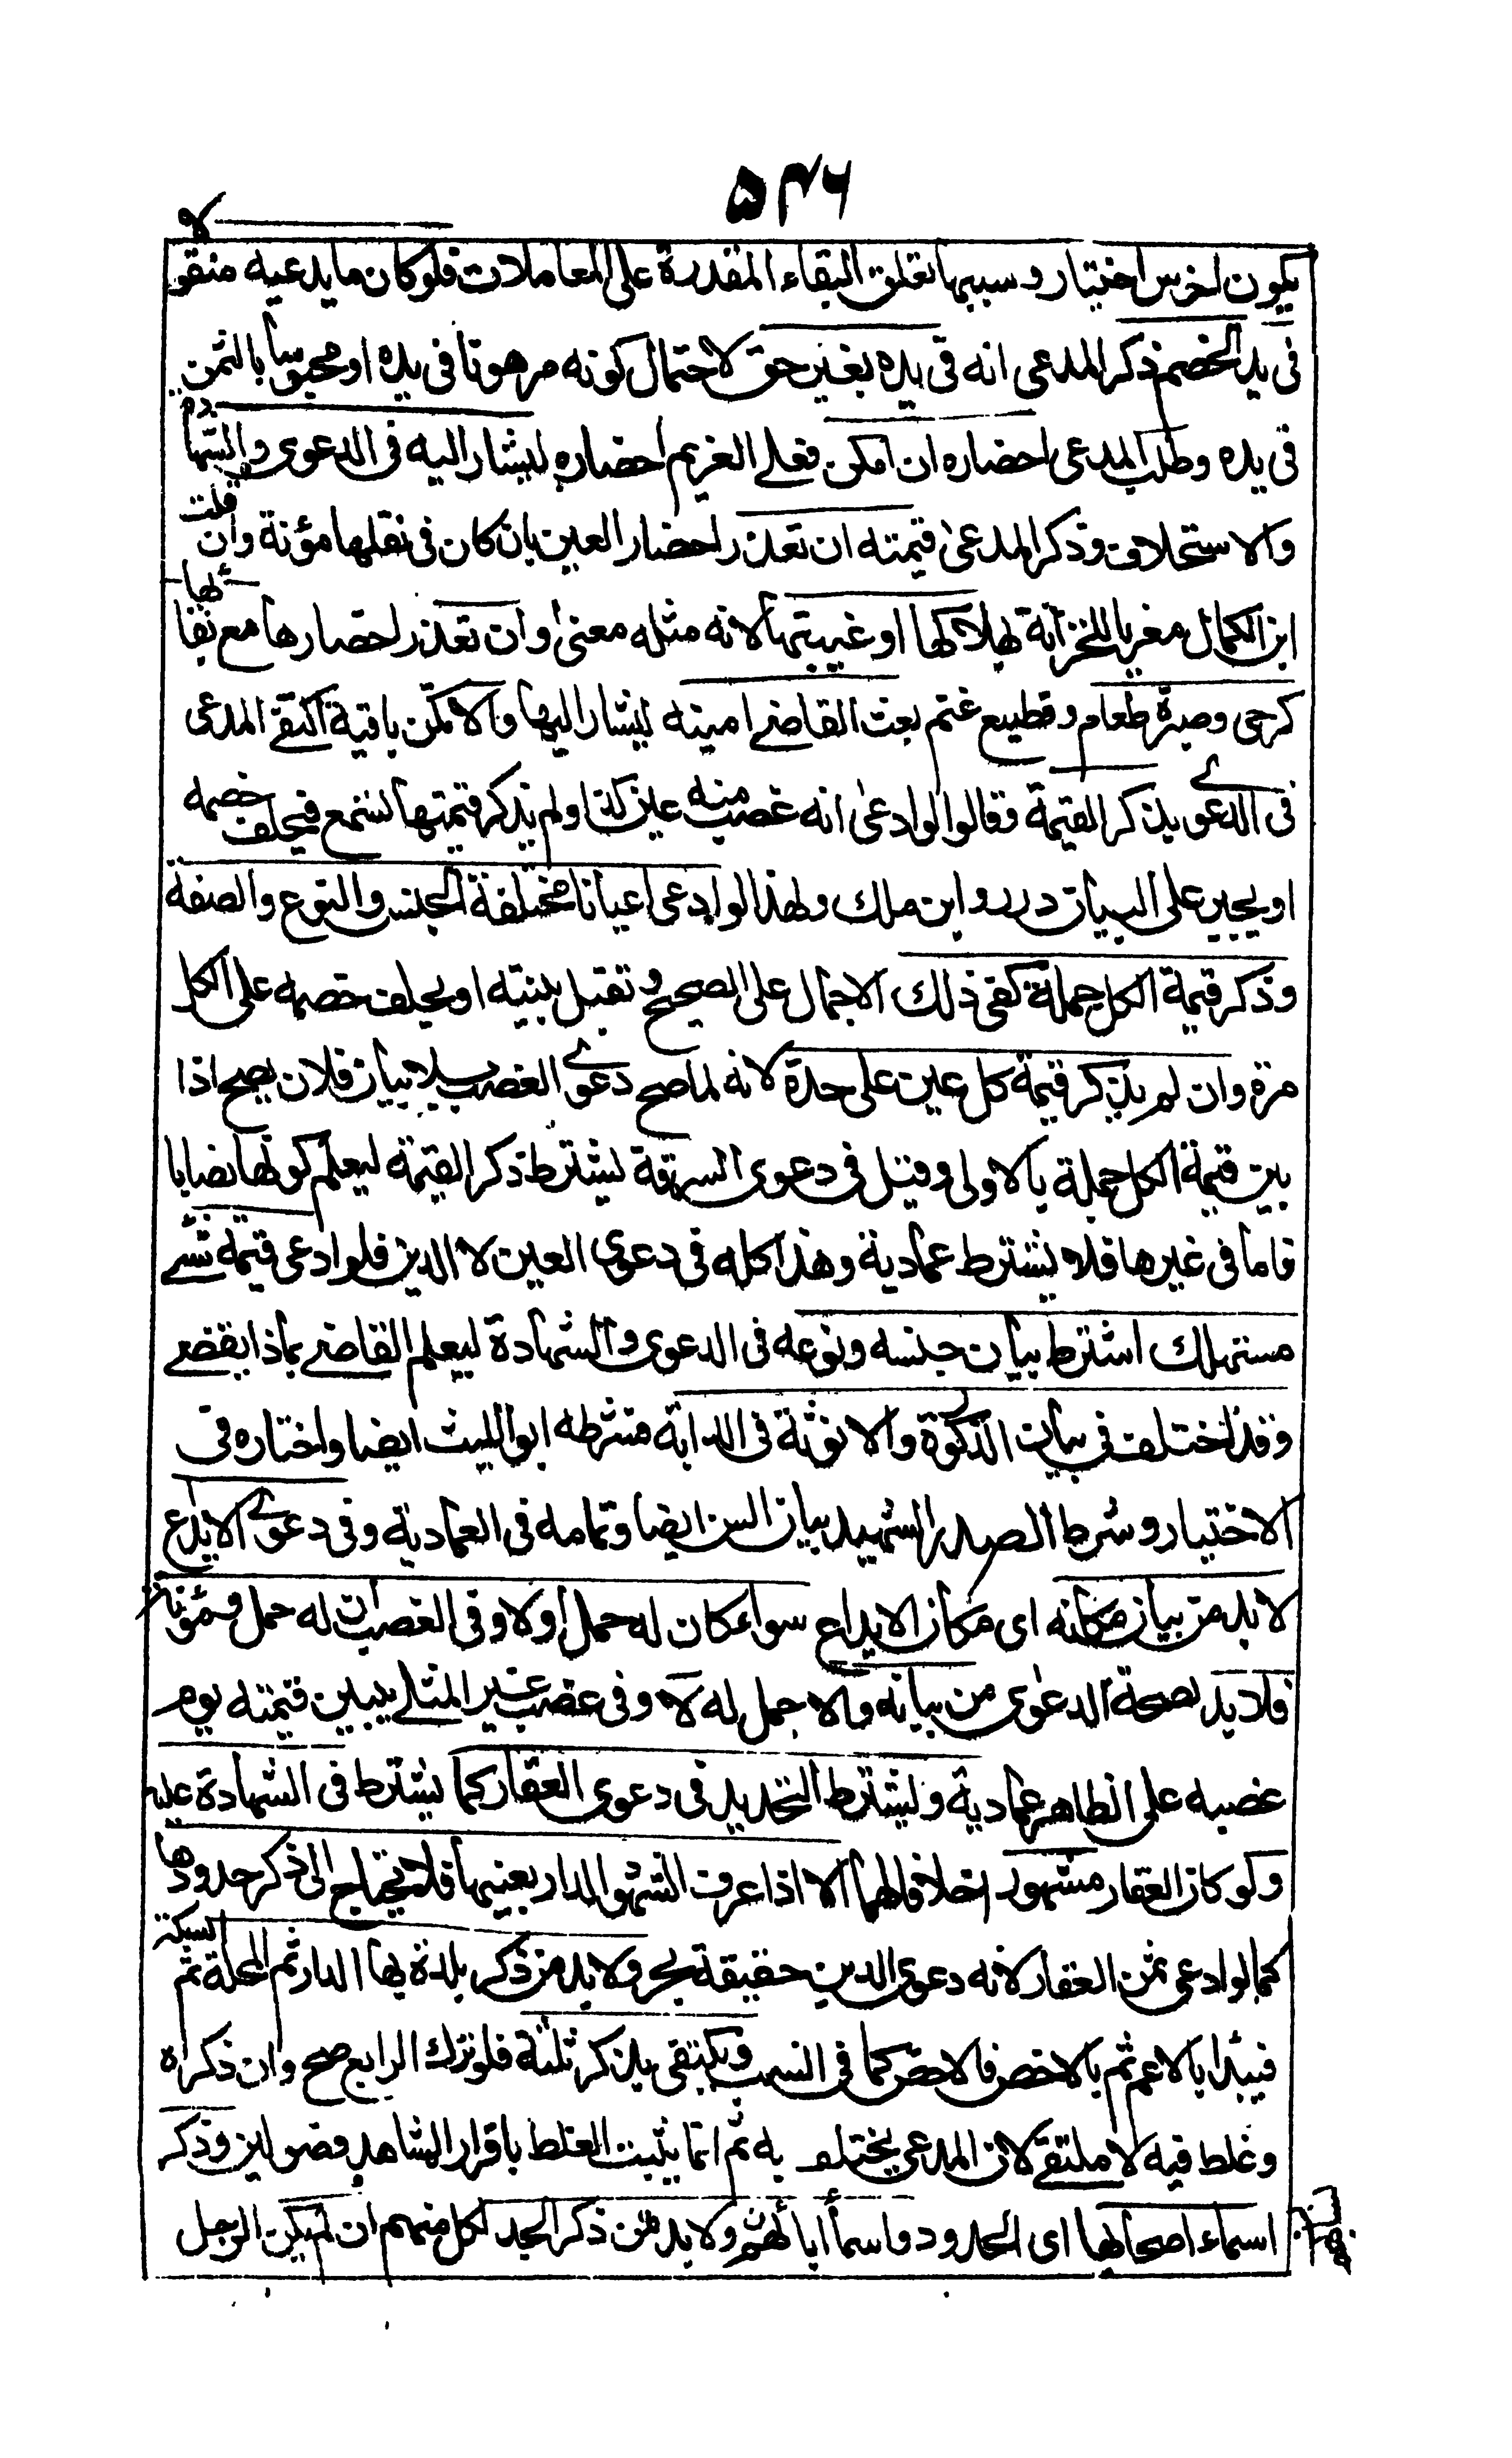 ۵۴۶
يكون اخرس اختيار وسببها تعلق البقاء المقدرة على المعاملات فلو كان ما يدعيه منقولا
فى يد الخصم ذكر المدعى انه فى يده بغير حق لاحتمال كونه مرهونا فى يده او محبوسا بالثمن
فى يده وطلب المدعى احضاره ان امكن فعلے الغريم احضاره ليشار اليه فى الدعوى والشهادة
والاستحلاف وذكر المدعى قيمته ان تعذر احضار العين بان كان فى نقلها مؤنة وان قلت
ابن الكمال مغريا للخزانة لهلاكها او غيبتها لانه مثله معنى وان تعذر احضارها مع بقائها
كرحى وصبرة طعام وقطيع غنم بعث القاضے امينه ليشار اليها والا تكن باقية اكتفے المدعى
فى الدعوے بذكر القيمة وقالوا لو ادعى انه غصب منه عين كذا ولم يذكر قيمتها تسمع فيحلف خصمه
او يجبر على البيان درر وابن ملك ولهذا لو ادعى اعيانا مختلفة الجنس والنوع والصفة
وذكر قيمة الكل جملة كفى ذلك الاجمال على الصحيح وتقبل بينته او يحلف خصمه على الكل
مرة وان لم يذكر قيمة كل عين على حدة لانه لما صح دعوے الغصب بلا بيان فلان يصح اذا
بين قيمة الكل جملة بالاولى وقيل فى دعوى السرقة يشترط ذكر القيمة ليعلم كونها نصابا
فاما فى غيرها فلا يشترط عمادية وهذا كله فى دعوى العين لا الدين فلو ادعى قيمة شئے
مستهلك اشترط بيان جنسه ونوعه فى الدعوى والشهادة ليعلم القاضے بماذا يقضے
وقد اختلف فى بيان الذكورة والانوثة فى الدابة فشرطه ابو الليث ايضا واختاره فى
الاختيار وشرط الصدر الشهيد بيان السن ايضا وتمامه فى العمادية وفى دعوے الايداع
لا بد من بيان مكانه اى مكان الايداع سواء كان له حمل او لا وفى الغصب ان له حمل ومؤنة
فلا بد لصحة الدعوى من بيانه والا حمل له لا وفى غصب غير المثلے يبين قيمته يوم
غصبه على الظاهر عمادية ويشترط التحديد فى دعوى العقار كما يشترط فى الشهادة عليه
ولو كان العقار مشهورا خلافا لهما الا اذا عرف الشهود الدار بعينها فلا يحتاج الى ذكر حدودها
كما لو ادعى ثمن العقار لانه دعوى الدين حقيقة بحر ولا بد من ذكر بلدة بها الدار ثم المحلة ثم السكة
فيبدا بالاعم ثم بالاخص فالاخص كما فى النسب ويكتفى بذكر ثلثة فلو ترك الرابع صح وان ذكراه
وغلط فيه لا ملتقے لان المدعى يختلف به ثم انما يثبت الغلط باقرار الشاهد فصولين وذكر
اسماء اصحابها اى الحدود واسماء ابائهم ولا بد من ذكر الجد لكل منهم ان لم يكن الرجل